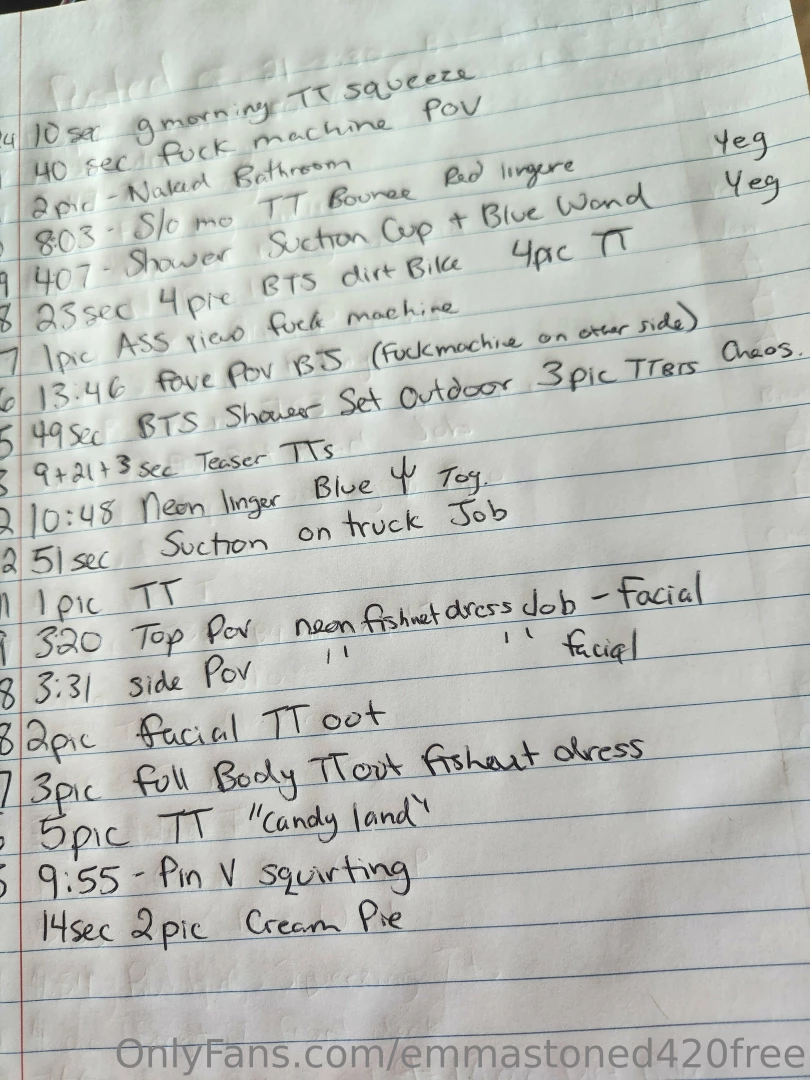 24 10 sec gmorning TT squeeze
40 sec fuck machine POV
2pic - Naked Bathroom
8:03 - Slo mo TT Bounce Red lingere Yeg
9 407 - Shower Suction Cup + Blue Wand Yeg
8 23sec 4pic BTS dirt Bike 4pic TT
7 1pic ASS view fuck machine
6 13:46 fove POV BJ (fuckmachine on other side)
5 49sec BTS Shower Set Outdoor 3pic TTBTS Chaos.
3 9+21+3 sec Teaser TTs
2 10:48 Neon linger Blue Toy.
2 51 sec Suction on truck Job
11 1pic TT
9 3:20 Top Pov neon fishnet dress Job - facial
8 3:31 side Pov '' '' facial
8 2pic facial TT oot
7 3pic full Body TT out fishent dress
5pic TT "Candy land"
5 9:55 - Pin V squirting
14sec 2pic Cream Pie
OnlyFans.com/emmastoned420free